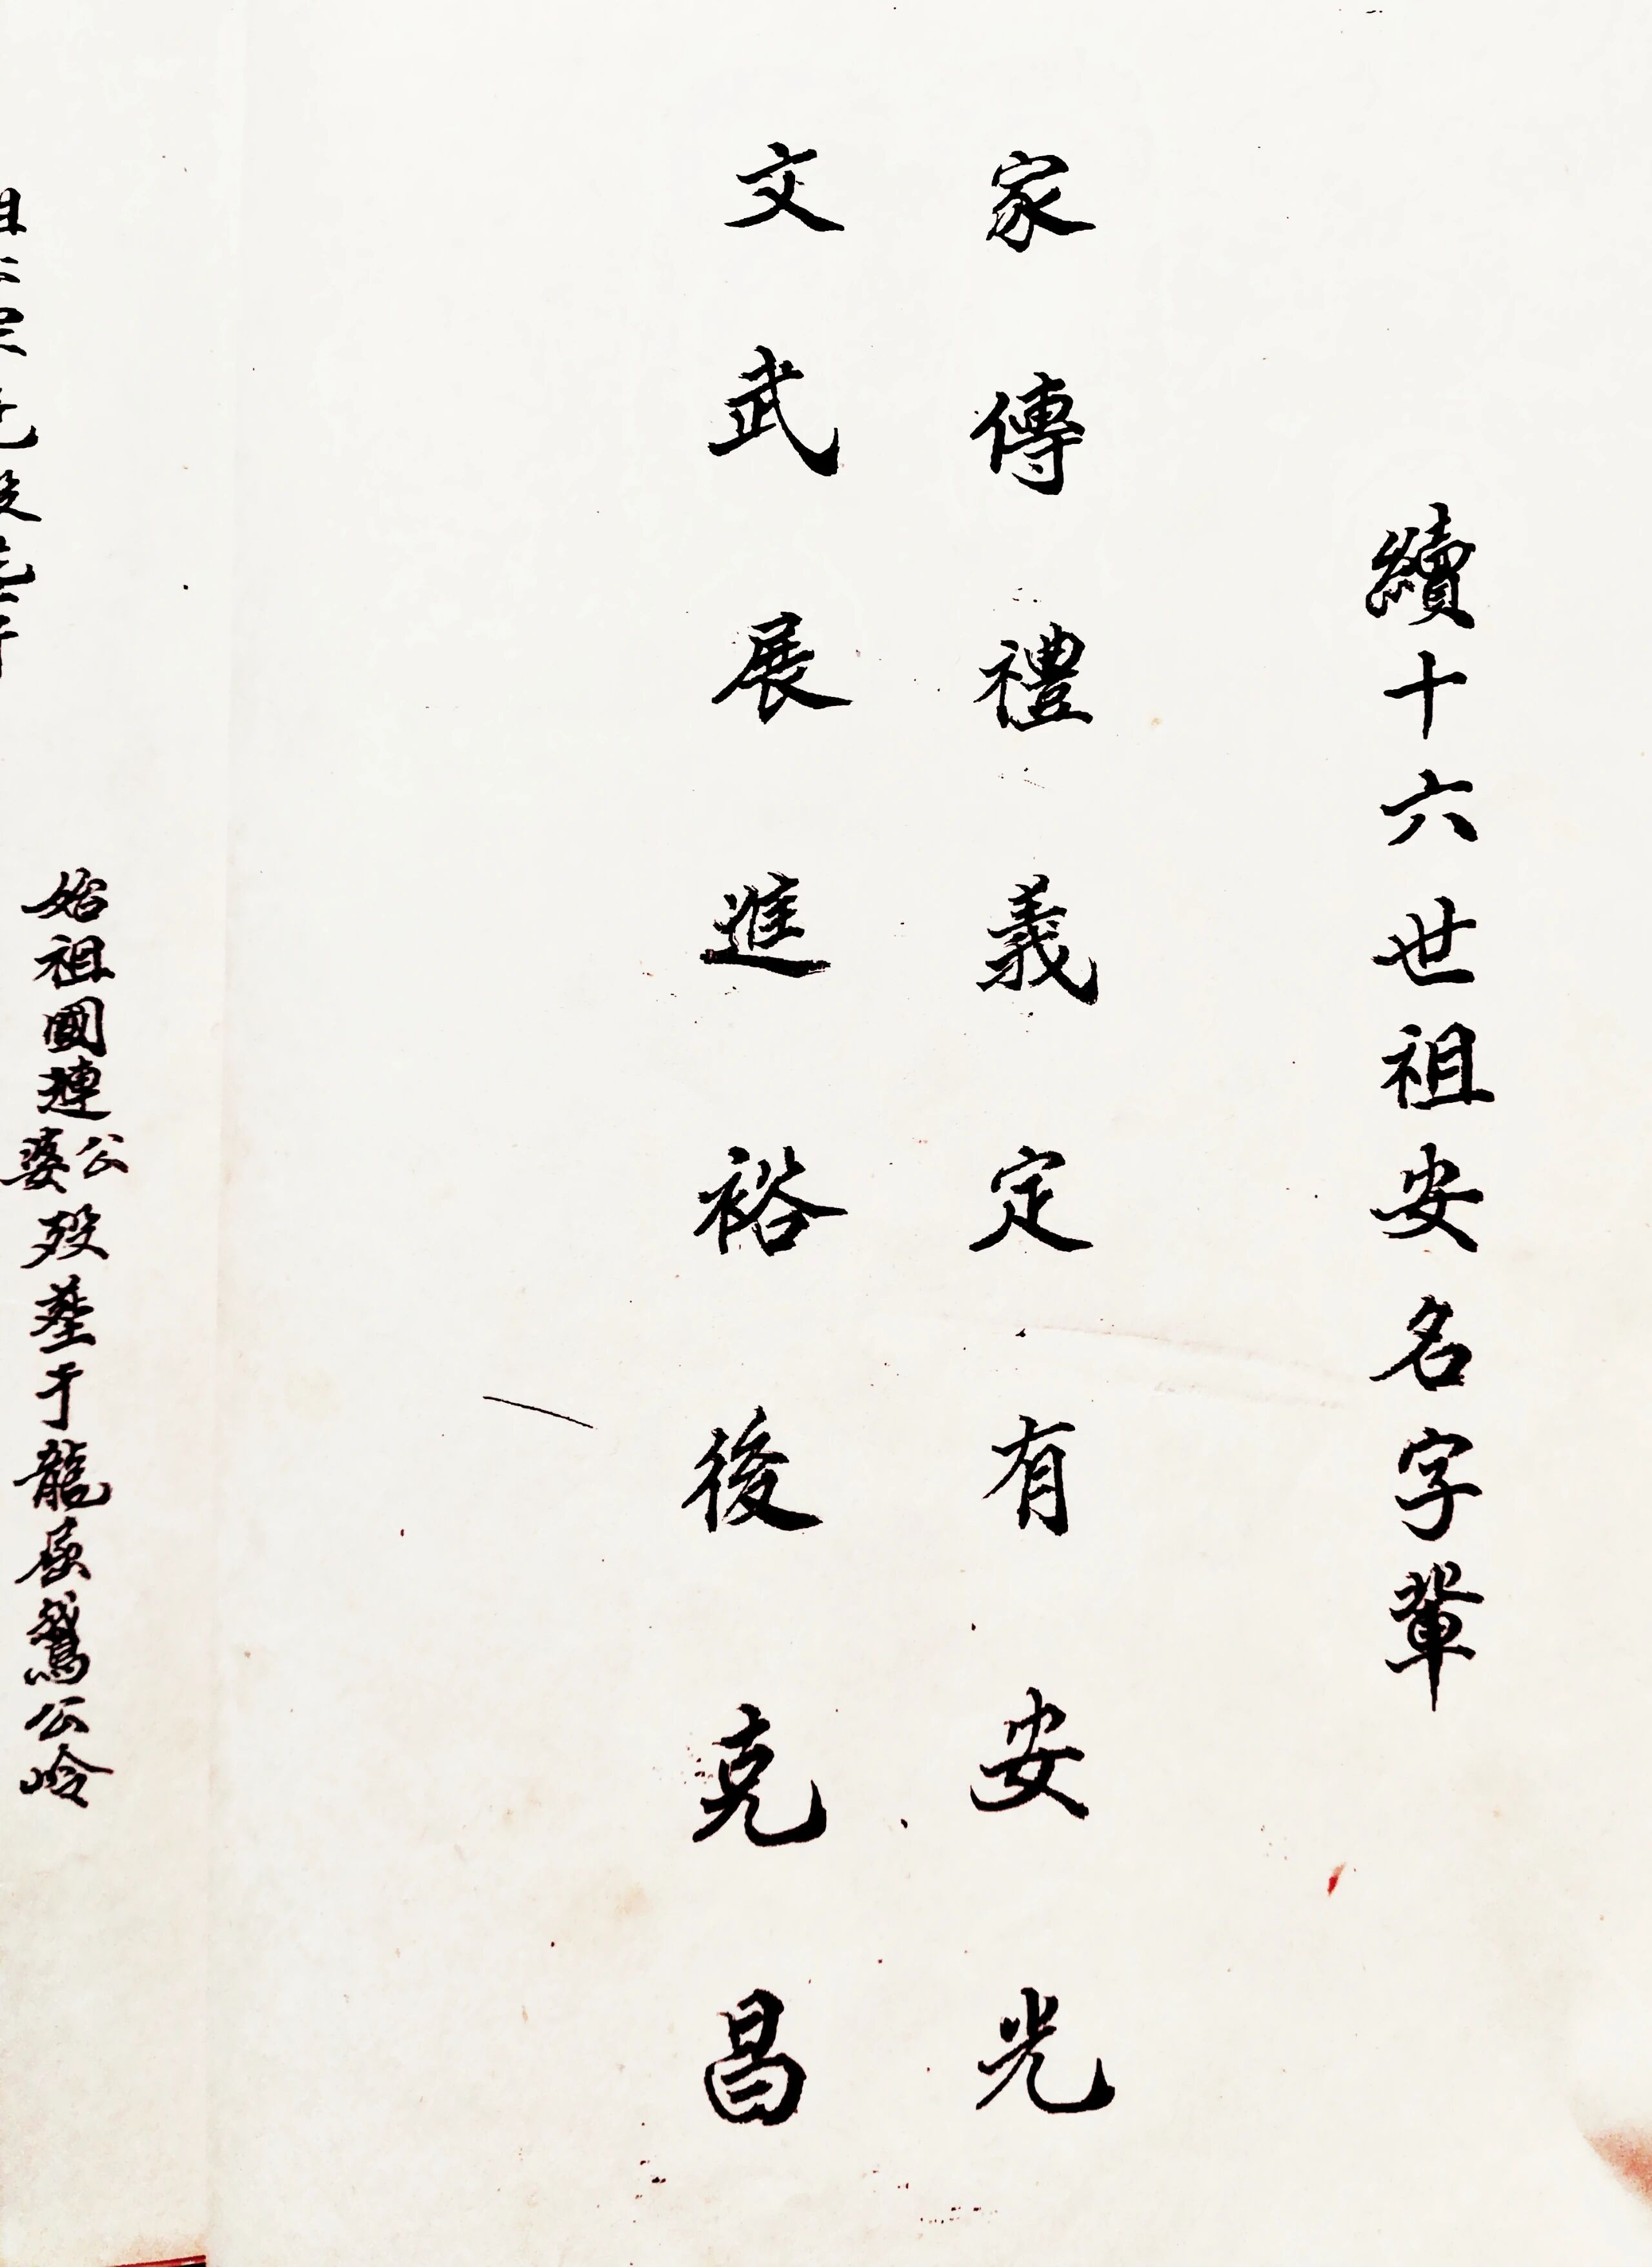 續十六世祖安名字輩
家傳禮義定有安光
文武展進裕後克昌
始祖國璉公婆歿塟于龍居鵞公岭